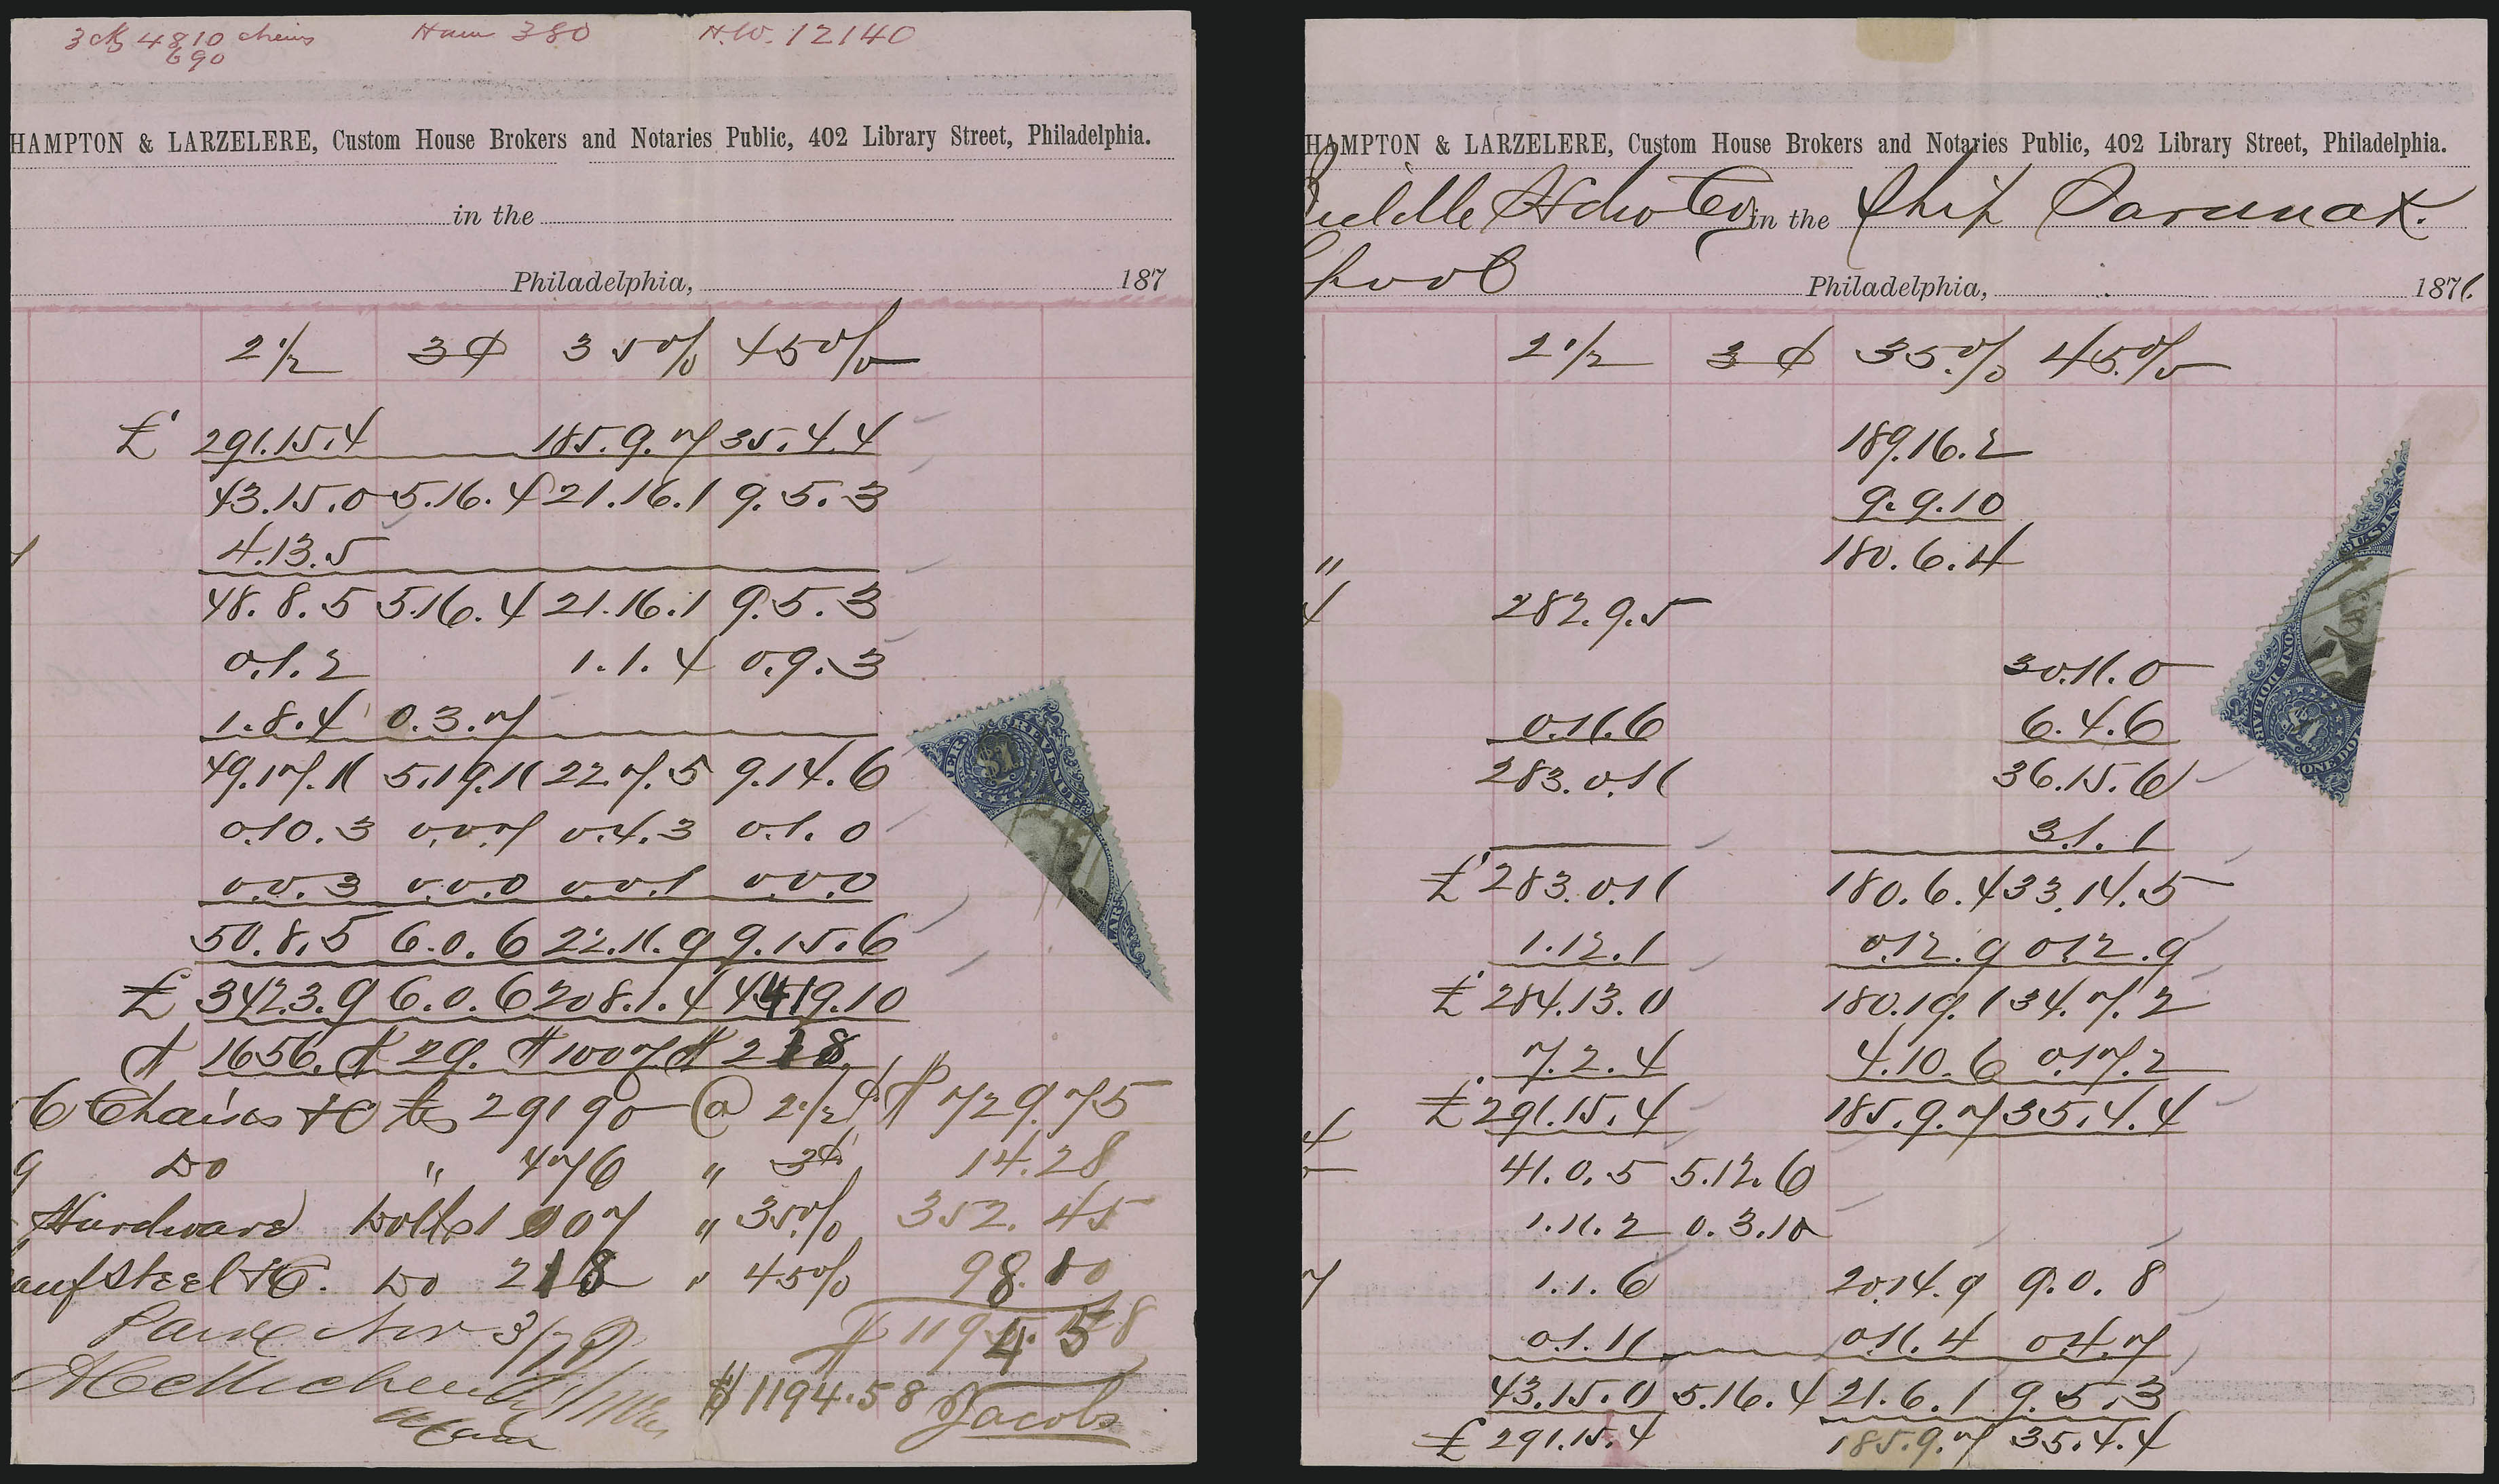 3 cks 4810 chains Ham 380 H.W. 12140
690
HAMPTON & LARZELERE, Custom House Brokers and Notaries Public, 402 Library Street, Philadelphia.
in the
Philadelphia, 187
2 1/2 3¢ 35% 45%
£ 291.15.4 185.9.7 35.4.4
43.15.0 5.16.4 21.16.1 9.5.3
4.13.5
48.8.5 5.16.4 21.16.1 9.5.3
0.1.2 1.1.4 0.9.3
1.8.4 0.3.7
49.17.11 5.19.11 22.7.5 9.14.6
0.10.3 0.0.7 0.4.3 0.1.0
0.0.3 0.0.0 0.0.1 0.0.0
50.8.5 6.0.6 22.11.9 9.15.6
£ 342.3.9 6.0.6 208.1.4 44.19.10
$ 1656. $ 29. $ 1007 $ 218
6 Chains &C lbs 29190 @ 2 1/2¢ $ 729.75
9 Do " 476 " 3¢ 14.28
Hardware Dolls 1007 " 35% 352.45
anf Steel &C. Do 218 " 45% 98.10
Nov 3/70 $ 1194.58
$ 1194.58 Jacobs
$1
HAMPTON & LARZELERE, Custom House Brokers and Notaries Public, 402 Library Street, Philadelphia.
iddle Hdw Co in the Ship Saranak.
pool Philadelphia, 1871.
2 1/2 3¢ 35% 45%
189.16.2
9.9.10
" 180.6.4
4 282.9.5
30.11.0
0.11.6 6.4.6
283.0.11 36.15.6
3.1.1
£ 283.0.11 180.6.4 33.14.5
1.12.1 0.12.9 0.12.9
£ 284.13.0 180.19.1 34.7.2
7.2.4 4.10.6 0.17.2
£ 291.15.4 185.9.7 35.4.4
41.0.5 5.12.6
1.11.2 0.3.10
7 1.1.6 20.14.9 9.0.8
0.1.11 0.11.4 0.4.7
43.15.0 5.16.4 21.6.1 9.5.3
£ 291.15.4 185.9.7 35.4.4
$1
ONE DOLLAR